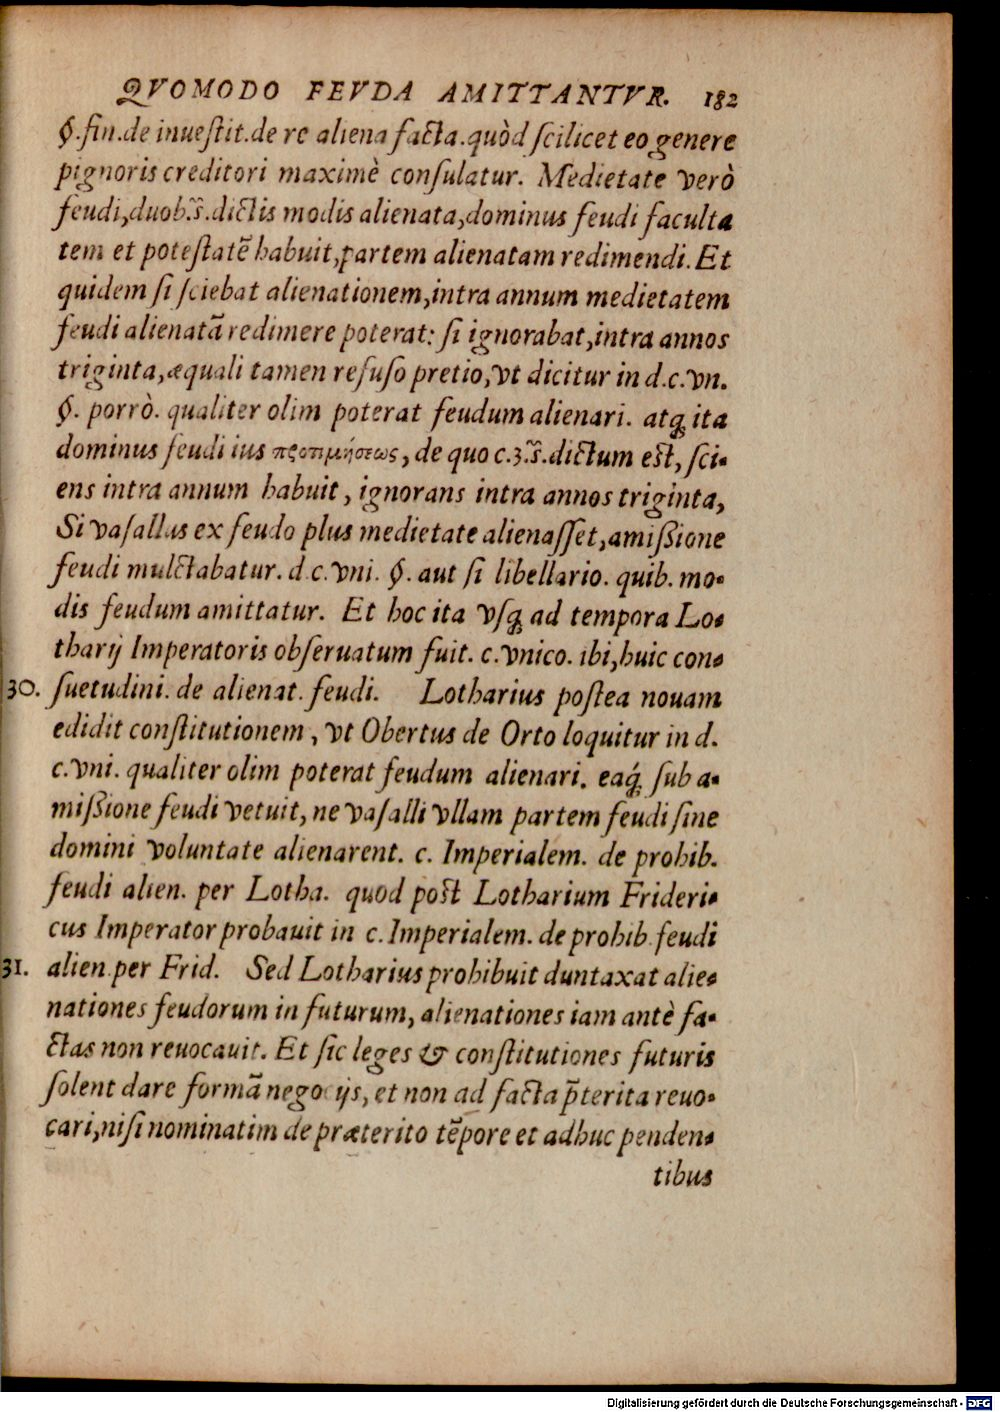 QVOMODO FEVDA AMITTANTVR. 182
§.fin.de inuestit.de re aliena facta.quòd scilicet eo genere
pignoris creditori maximè consulatur. Medietate verò
feudi,duob.^9s.dictis modis alienata,dominus feudi faculta
tem et potestatẽ habuit,partem alienatam redimendi. Et
quidem si sciebat alienationem,intra annum medietatem
feudi alienatã redimere poterat: si ignorabat,intra annos
triginta,æquali tamen refuso pretio,vt dicitur in d.c.vn.
§. porrò. qualiter olim poterat feudum alienari. atq; ita
dominus feudi ius προτιμήσεως, de quo c.3.s.dictum est, sci-
ens intra annum habuit, ignorans intra annos triginta,
Si vasallus ex feudo plus medietate alienasset,amißione
feudi mulctabatur. d.c.vni. §. aut si libellario. quib. mo-
dis feudum amittatur. Et hoc ita vsq; ad tempora Lo-
tharij Imperatoris obseruatum fuit. c.vnico. ibi,huic con-
30. suetudini. de alienat. feudi. Lotharius postea nouam
edidit constitutionem, vt Obertus de Orto loquitur in d.
c.vni. qualiter olim poterat feudum alienari. eaq́; sub a-
mißione feudi vetuit, ne vasalli vllam partem feudi sine
domini voluntate alienarent. c. Imperialem. de prohib.
feudi alien. per Lotha. quod post Lotharium Frideri-
cus Imperator probauit in c. Imperialem. de prohib.feudi
31. alien.per Frid. Sed Lotharius prohibuit duntaxat alie-
nationes feudorum in futurum, alienationes iam antè fa-
ctas non reuocauit. Et sic leges & constitutiones futuris
solent dare formã negocijs, et non ad facta p̃terita reuo-
cari,nisi nominatim de præterito tẽpore et adhuc penden-
tibus
Digitalisierung gefördert durch die Deutsche Forschungsgemeinschaft - DFG